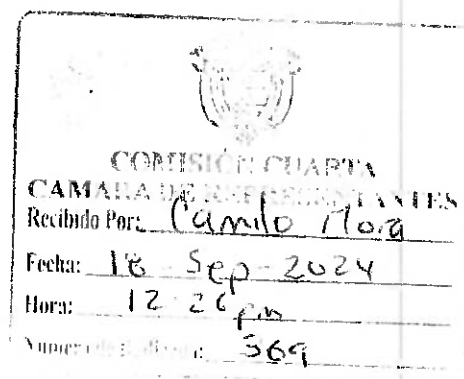 COMISIÓN CUARTA
CAMARA DE REPRESENTANTES
Recibido Por: Camilo Mora
Fecha: 18 Sep - 2024
Hora: 12 26 pm
569